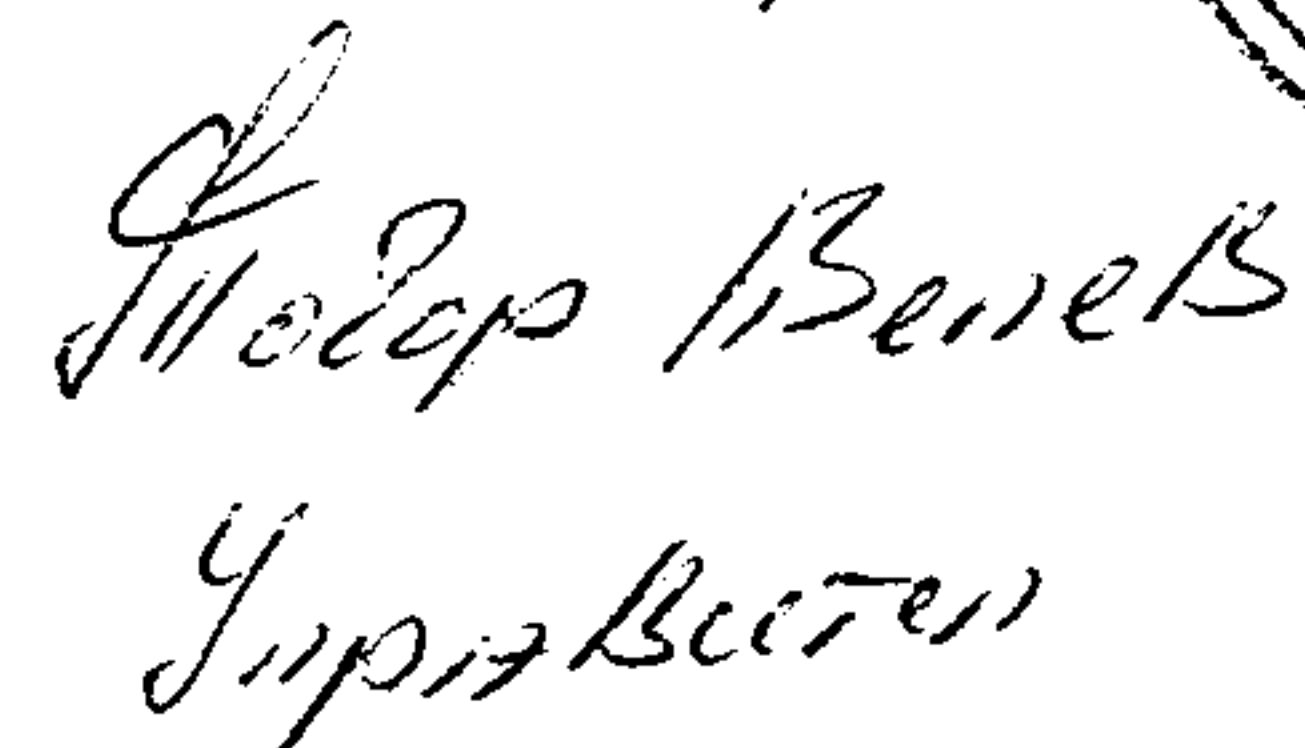 Тодор Велев
Управител